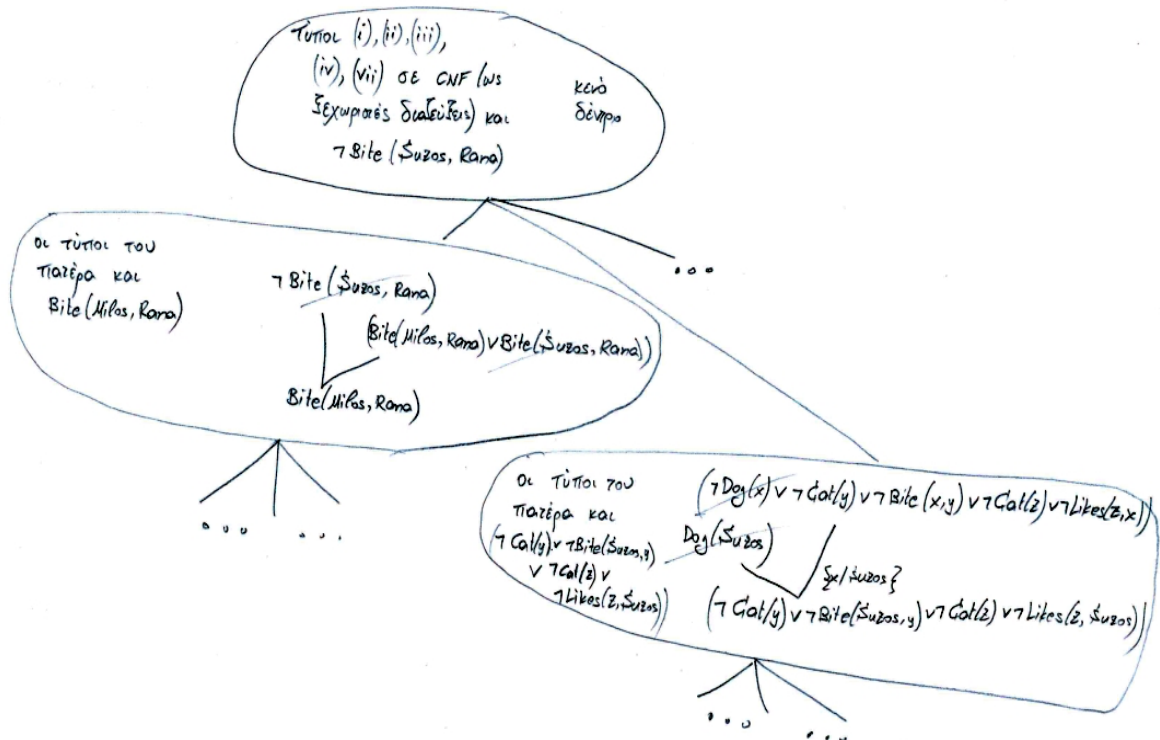 Τύποι (i), (ii), (iii),
(iv), (vii) σε CNF (ως
ξεχωριστές διαζεύξεις) και
¬Bite(Śuzos, Rana)
κενό
δέντρο
...
οι τύποι του
πατέρα και
Bite(Milos, Rana)
¬Bite(Śuzos, Rana)
(Bite(Milos, Rana) ∨ Bite(Śuzos, Rana))
Bite(Milos, Rana)
... ...
Οι τύποι του
πατέρα και
(¬Cat(y) ∨ ¬Bite(Śuzos, y)
∨ ¬Cat(z) ∨
¬Likes(z, Śuzos))
(¬Dog(x) ∨ ¬Cat(y) ∨ ¬Bite(x,y) ∨ ¬Cat(z) ∨ ¬Likes(z,x))
Dog(Śuzos)
{x/Śuzos}
(¬Cat(y) ∨ ¬Bite(Śuzos, y) ∨ ¬Cat(z) ∨ ¬Likes(z, Śuzos))
... ...